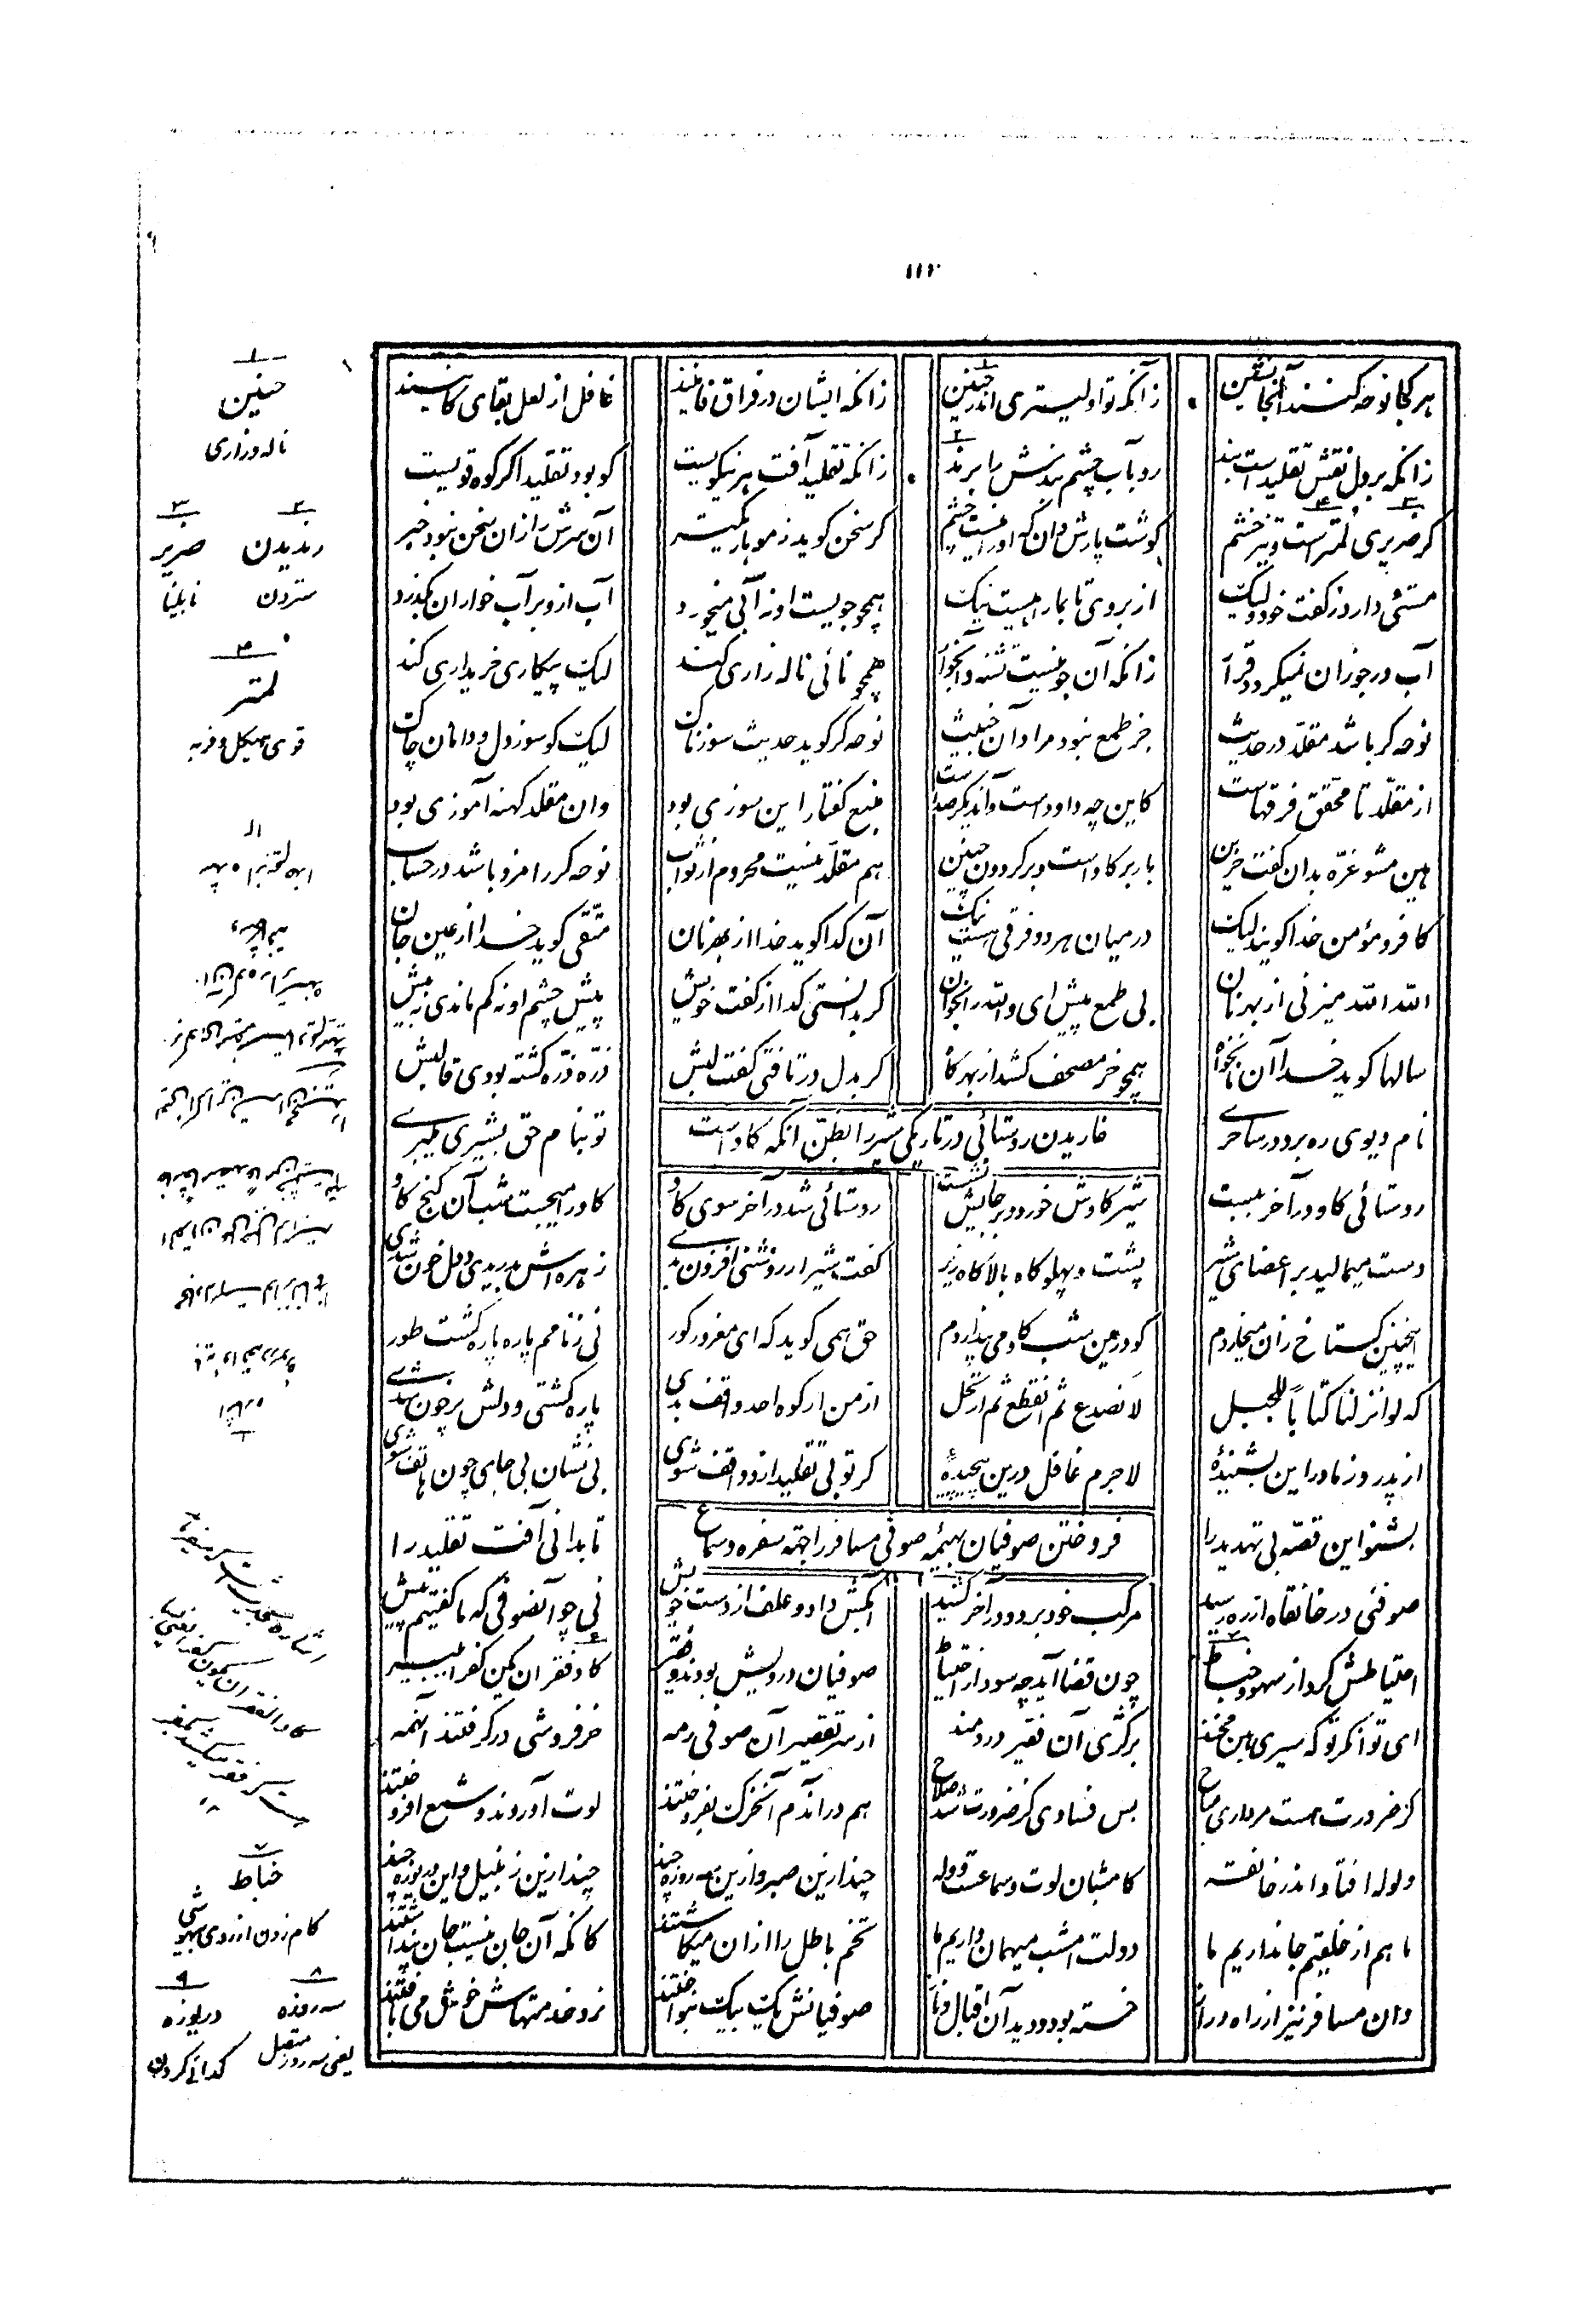 ۱۱۲
هر کجا نوحه کنند آنجا نشین زآنکه تو اولیتری اندر حنین زانکه ایشان در فراق فانیند غافل از لعل بقای کانیند
زانکه بر دل نقش تقلیدست بند رو بآب چشم بندش را برند زانکه تقلید آفت هر نیکویست که بود تقلید اگر کوه قویست
گر ضریری لمترست و تیز خشم گوشت پارش دان که او را نیست چشم گر سخن گوید ز مو باریکتر آن سرش را زان سخن نبود خبر
مستئی دارد ز گفت خود ولیک از بر وی تا بما راهیست نیک همچو جویست او نه آبی میخورد آب ازو بر آب خواران بگذرد
آب در جو زان نمیگردد قرار زانکه آن جو نیست تشنه و آبخوار همچو نائی ناله زاری کند لیک پیکاری خریداری کند
نوحه گر باشد مقلد در حدیث جز طمع نبود مراد آن خبیث نوحه گر گوید حدیث سوزناک لیک کو سوز دل و دامان چاک
از مقلّد تا محقق فرقهاست کاین چه داودست و آن دیگر صداست منبع گفتار این سوزی بود وان مقلد کهنه آموزی بود
هین مشو غرّه بدان گفت حزین بار بر گاوست و بر گردون چنین هم مقلّد نیست محروم از ثواب نوحه گر را مزد باشد در حساب
کافر و مؤمن خدا گویند لیک در میان هر دو فرقی هست نیک آن گدا گوید خدا از بهر نان متّقی گوید خدا از عین جان
الله الله میزنی از بهر نان بی طمع پیش ای و الله را بخوان گر بدانستی گدا از گفت خویش پیش چشم او نه کم ماندی نه بیش
سالها گوید خدا آن نانخواه همچو خر مصحف کشد از بهر کاه گر بدل در تافتی گفت لبش ذرّه ذرّه گشته بودی قالبش
نام دیوی ره برد در ساحری خاریدن روستائی در تاریکی شیر را بظنّ آنکه گاو است تو بنام حق بشیری میبری
روستائی گاو در آخر ببست شیر گاوش خورد و بر جایش نشست روستائی شد در آخر سوی گاو گاو را میجست شب آن کنج کاو
دست میمالید بر اعضای شیر پشت و پهلو گاه بالا گاه زیر گفت شیر ار روشنی افزون بدی زهره اش بدریدی و دل خون شدی
اینچنین گستاخ زان میخاردم کو درین شب گاو می پنداردم حق همی گوید که ای مغرور کور نی ز نامم پاره پاره گشت طور
که لو انزلنا کتابا للجبل لانصدع ثم انقطع ثم ارتحل از من ار کوه احد واقف بدی پاره گشتی و دلش پر خون شدی
از پدر وز مادر این بشنیدهٔ لاجرم غافل درین پیچیدهٔ گر تو بی تقلید ازو واقف شوی بی نشان بی جای چون هاتف شوی
بشنو این قصّه پی تهدید را فروختن صوفیان بهیمه صوفی مسافر را جهة سفره و سماع تا بدانی آفت تقلید را
صوفئی در خانقاه از ره رسید مرکب خود برد و در آخر کشید آبکش داد و علف از دست خویش نی چو آنصوفی که ما گفتیم پیش
احتیاطش کرد از سهو و خباط چون قضا آید چه سود از احتیاط صوفیان درویش بودند و فقیر کاد فقر ان یکن کفرا یبیر
ای توانگر تو که سیری هین مخند بر کژی آن فقیر دردمند از سر تقصیر آن صوفی رمه خر فروشی در گرفتند آنهمه
کز ضرورت هست مرداری مباح بس فسادی کز ضرورت شد صلاح هم در آندم آنخرک بفروختند لوت آوردند و شمع افروختند
ولوله افتاد اندر خانقه کامشبان لوت و سماعست و وله چند ازین صبر و ازین سه روزه چند چند ازین زنبیل و این دریوزه چند
ما هم از خلقیم جان داریم ما دولت امشب میهمان داریم ما تخم باطل را از آن میکاشتند کانکه آن جان نیست جان پنداشتند
وان مسافر نیز از راه دراز خسته بود و دید آن اقبال و ناز صوفیانش یک بیک بنواختند نرد خدمتهاش خوش می باختند
۱
حنین
ناله و زاری
۲ ۳
رندیدن ضریر
ستردن نابینا
۴
لمتر
قوی هیکل و فربه
۷
خباط
گام زدن از روی بیهوشی
۸ ۹
سه روزه دریوزه
یعنی سه روز متصل گدائی کردن